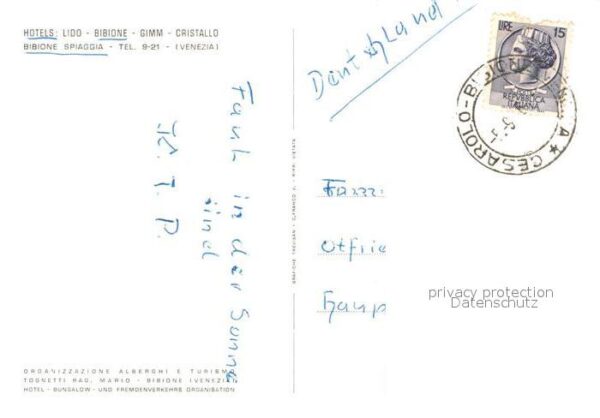 HOTELS: LIDO - BIBIONE - GIMM - CRISTALLO
BIBIONE SPIAGGIA - TEL. 9-21 - (VENEZIA)
Faul in der Sonne
sind
Deutschland
LIRE 15
REPUBBLICA
ITALIANA
CESAROLO - BIBIONE
Otfrie
Haup
privacy protection
Datenschutz
ORGANIZZAZIONE ALBERGHI E TURISMO
TOGNETTI RAG. MARIO - BIBIONE (VENEZIA)
HOTEL - BUNGALOW - UND FREMDENVERKEHRS ORGANISATION